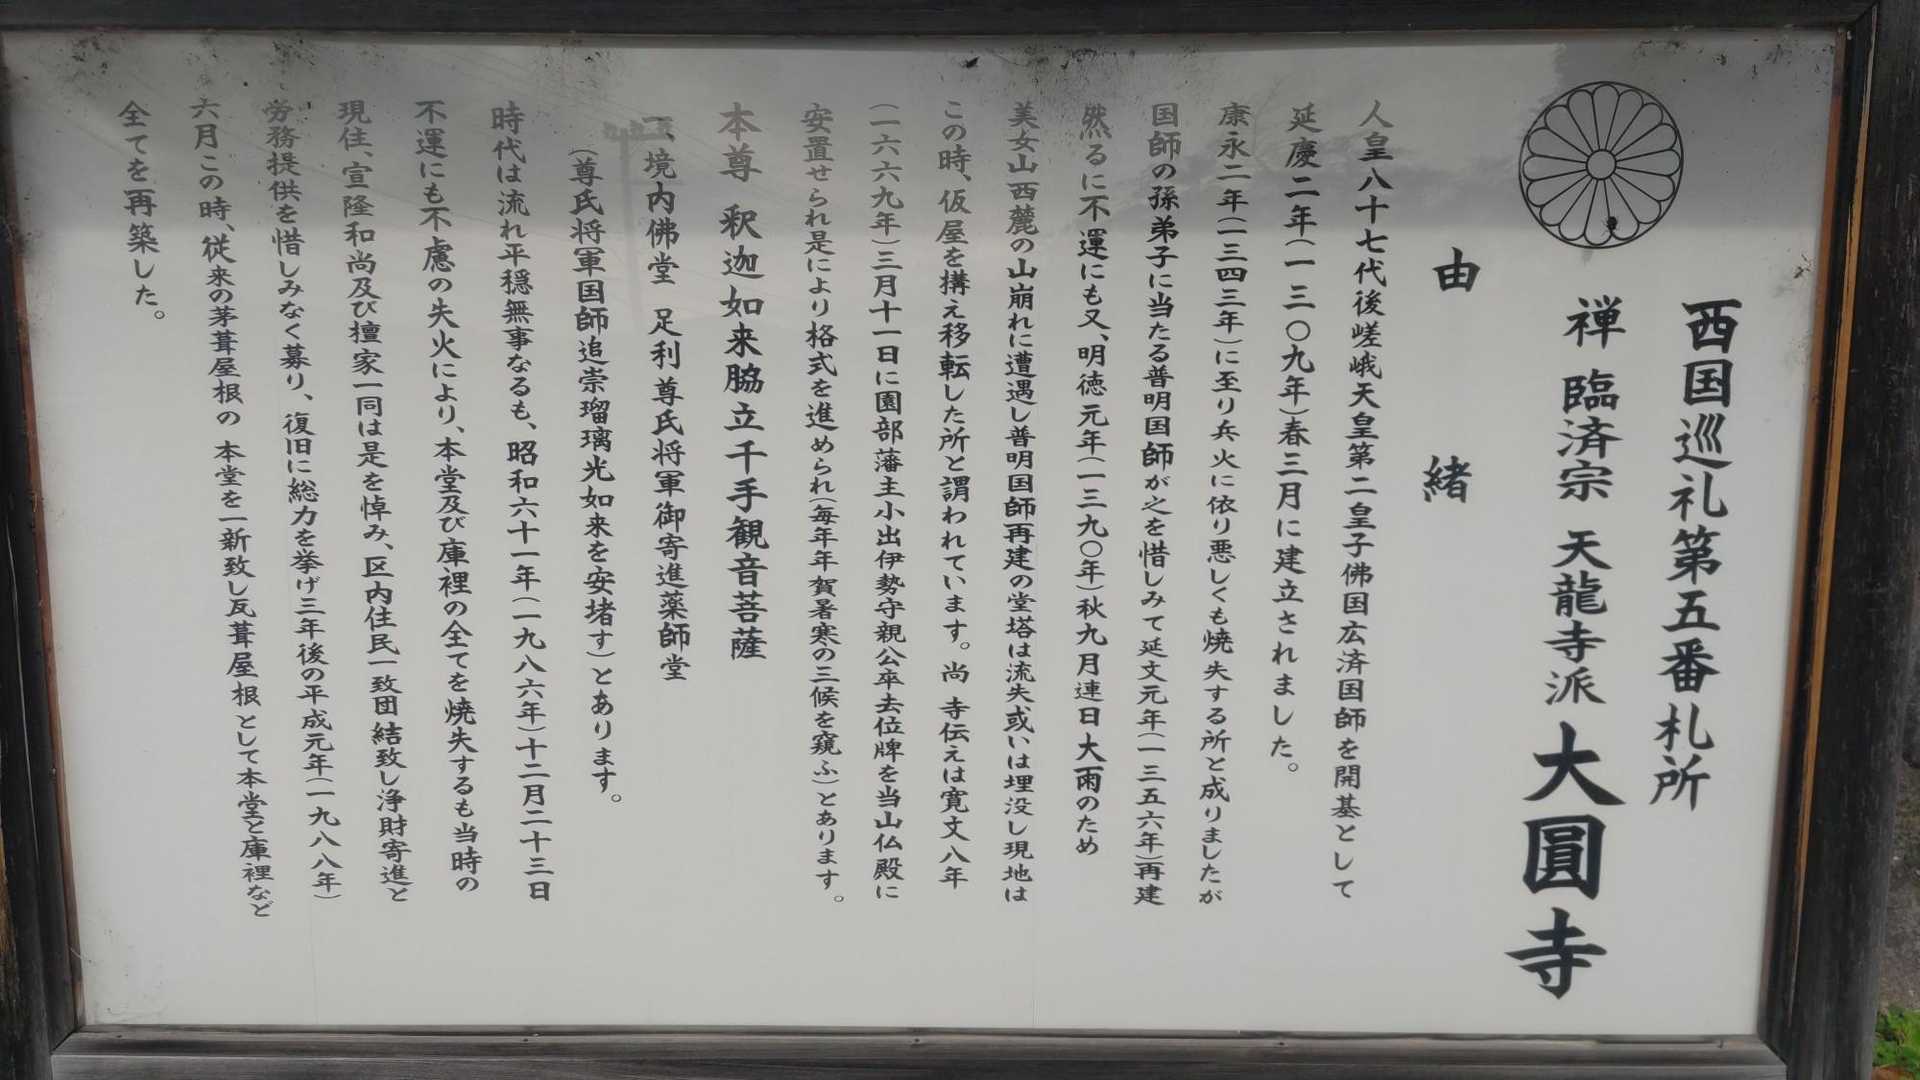 西国巡礼第五番札所
禅 臨済宗 天龍寺派 大圓寺
由緒
人皇八十七代後嵯峨天皇第二皇子佛国広済国師を開基として
延慶二年(一三〇九年)春三月に建立されました。
康永二年(一三四三年)に至り兵火に依り悪しくも焼失する所と成りましたが
国師の孫弟子に当たる普明国師が之を惜しみて延文元年(一三五六年)再建
然るに不運にも又、明徳元年(一三九〇年)秋九月連日大雨のため
美女山西麓の山崩れに遭遇し普明国師再建の堂塔は流失或いは埋没し現地は
この時、仮屋を構え移転した所と謂われています。尚 寺伝えは寛文八年
(一六六九年)三月十一日に園部藩主小出伊勢守親公卒去位牌を当山仏殿に
安置せられ是により格式を進められ(毎年年賀暑寒の三候を窺ふ)とあります。
本尊 釈迦如来脇立千手観音菩薩
一、境内佛堂 足利尊氏将軍御寄進薬師堂
(尊氏将軍国師追崇瑠璃光如来を安堵す)とあります。
時代は流れ平穏無事なるも、昭和六十一年(一九八六年)十二月二十三日
不運にも不慮の失火により、本堂及び庫裡の全てを焼失するも当時の
現住、宣隆和尚及び擅家一同は是を悼み、区内住民一致団結致し浄財寄進と
労務提供を惜しみなく募り、復旧に総力を挙げ三年後の平成元年(一九八八年)
六月この時、従来の茅葺屋根の 本堂を一新致し瓦葺屋根として本堂と庫裡など
全てを再築した。